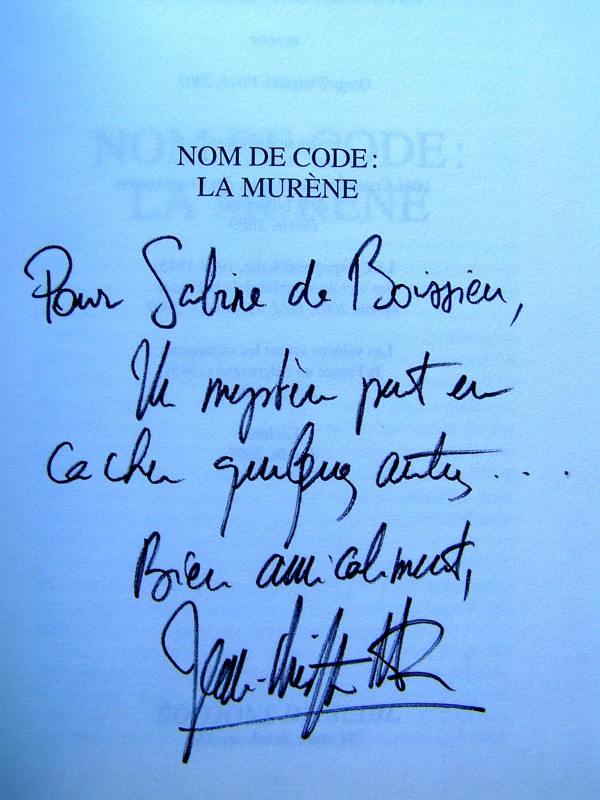 NOM DE CODE :
LA MURÈNE
Pour Sabine de Boissieu,
Un mystère peut en
cacher quelques autres....
Bien amicalement,
Jean-Christophe